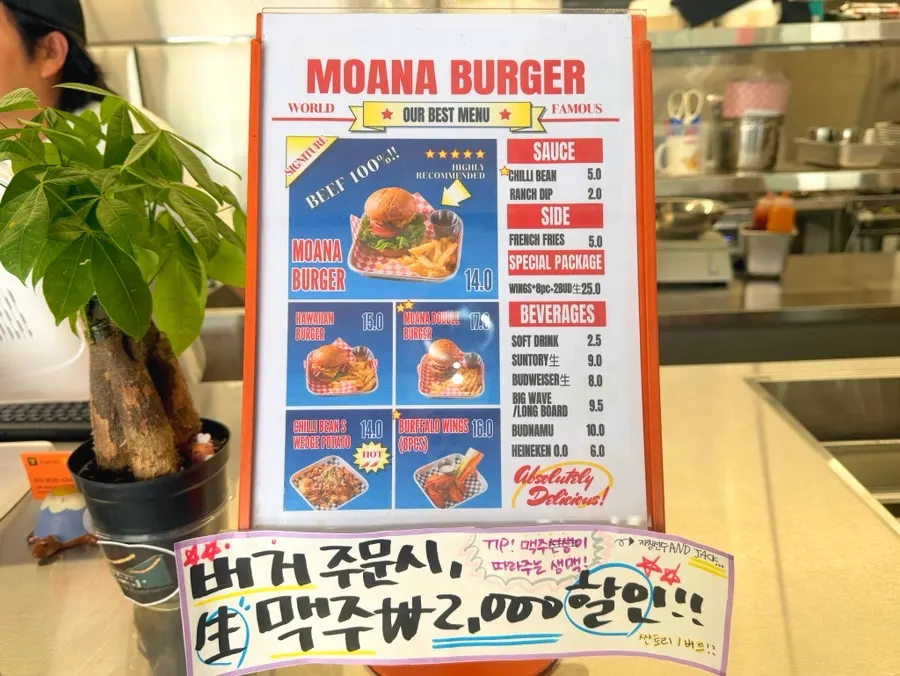 MOANA BURGER
WORLD
OUR BEST MENU
FAMOUS
SIGNITURE
BEEF 100%!!
HIGHLY
RECOMMENDED
MOANA
BURGER
14.0
HAWAIIAN
BURGER
15.0
MOANA DOUBLE
BURGER
17.0
CHILLI BEAN S
WEDGE POTATO
14.0
HOT
BURFFALO WINGS
(8PCS)
16.0
SAUCE
CHILLI BEAN 5.0
RANCH DIP 2.0
SIDE
FRENCH FRIES 5.0
SPECIAL PACKAGE
WINGS*8pc+2BUD生 25.0
BEVERAGES
SOFT DRINK 2.5
SUNTORY生 9.0
BUDWEISER生 8.0
BIG WAVE
/LONG BOARD 9.5
BUDNAMU 10.0
HEINEKEN 0.0 6.0
Absolutely
Delicious!
버거 주문시,
生 맥주 ₩2,000 할인!!
TIP! 맥주선생이
따라주는 생맥!
AND JACK
싼토리 / 버드!?